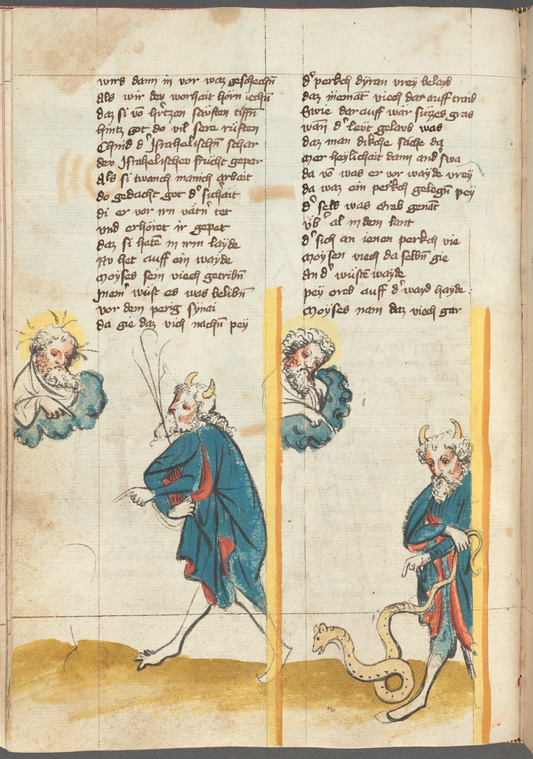 wirs dann in vor waz geschechn̄
Als wir dey worhait hörn iechn̄
daz si võ hertzen säuften tiffn̄
hintz got do vil sere rüften
Chind dʾ Israhelischn̄ schar
dev Israhelischev frücht gepar
Als si twanch manich arbait
do gedacht got dʾ sichʾait
di er vor irn vätn̄ tet
vnd erhöret ir gepet
daz si hete in irm layde
Nv het auff ein wayde
Moyses sein viech getribn̄
In ein wüst es was belibn̄
vor dem perig synai
da gie daz vich nachn̄ pey
dʾ perkch dyran vrey belayb
daz niemāt viech dar auff traib
Swie dar auff wär süzes gras
wan̄ dʾ levt gelaub was
daz man dikche sache da
mer heylichait dann and swa
da võ was er vor wayde vrey
da waz ein perkch gelegn̄ pey
dʾ sels was orab genāt
vbʾ al in dem lant
dʾ sich an ienen perkch vie
Moysen viech da selbn̄ gie
an dʾ wüstn̄ wayde
pey oreb auff dʾ wayd hayde:
Moyses nam daz viech gar